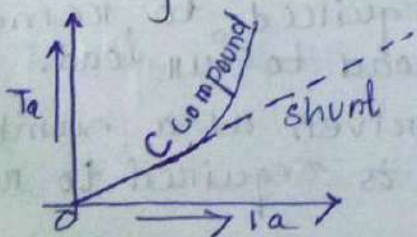 Ta
C Compound
shunt
O
Ia